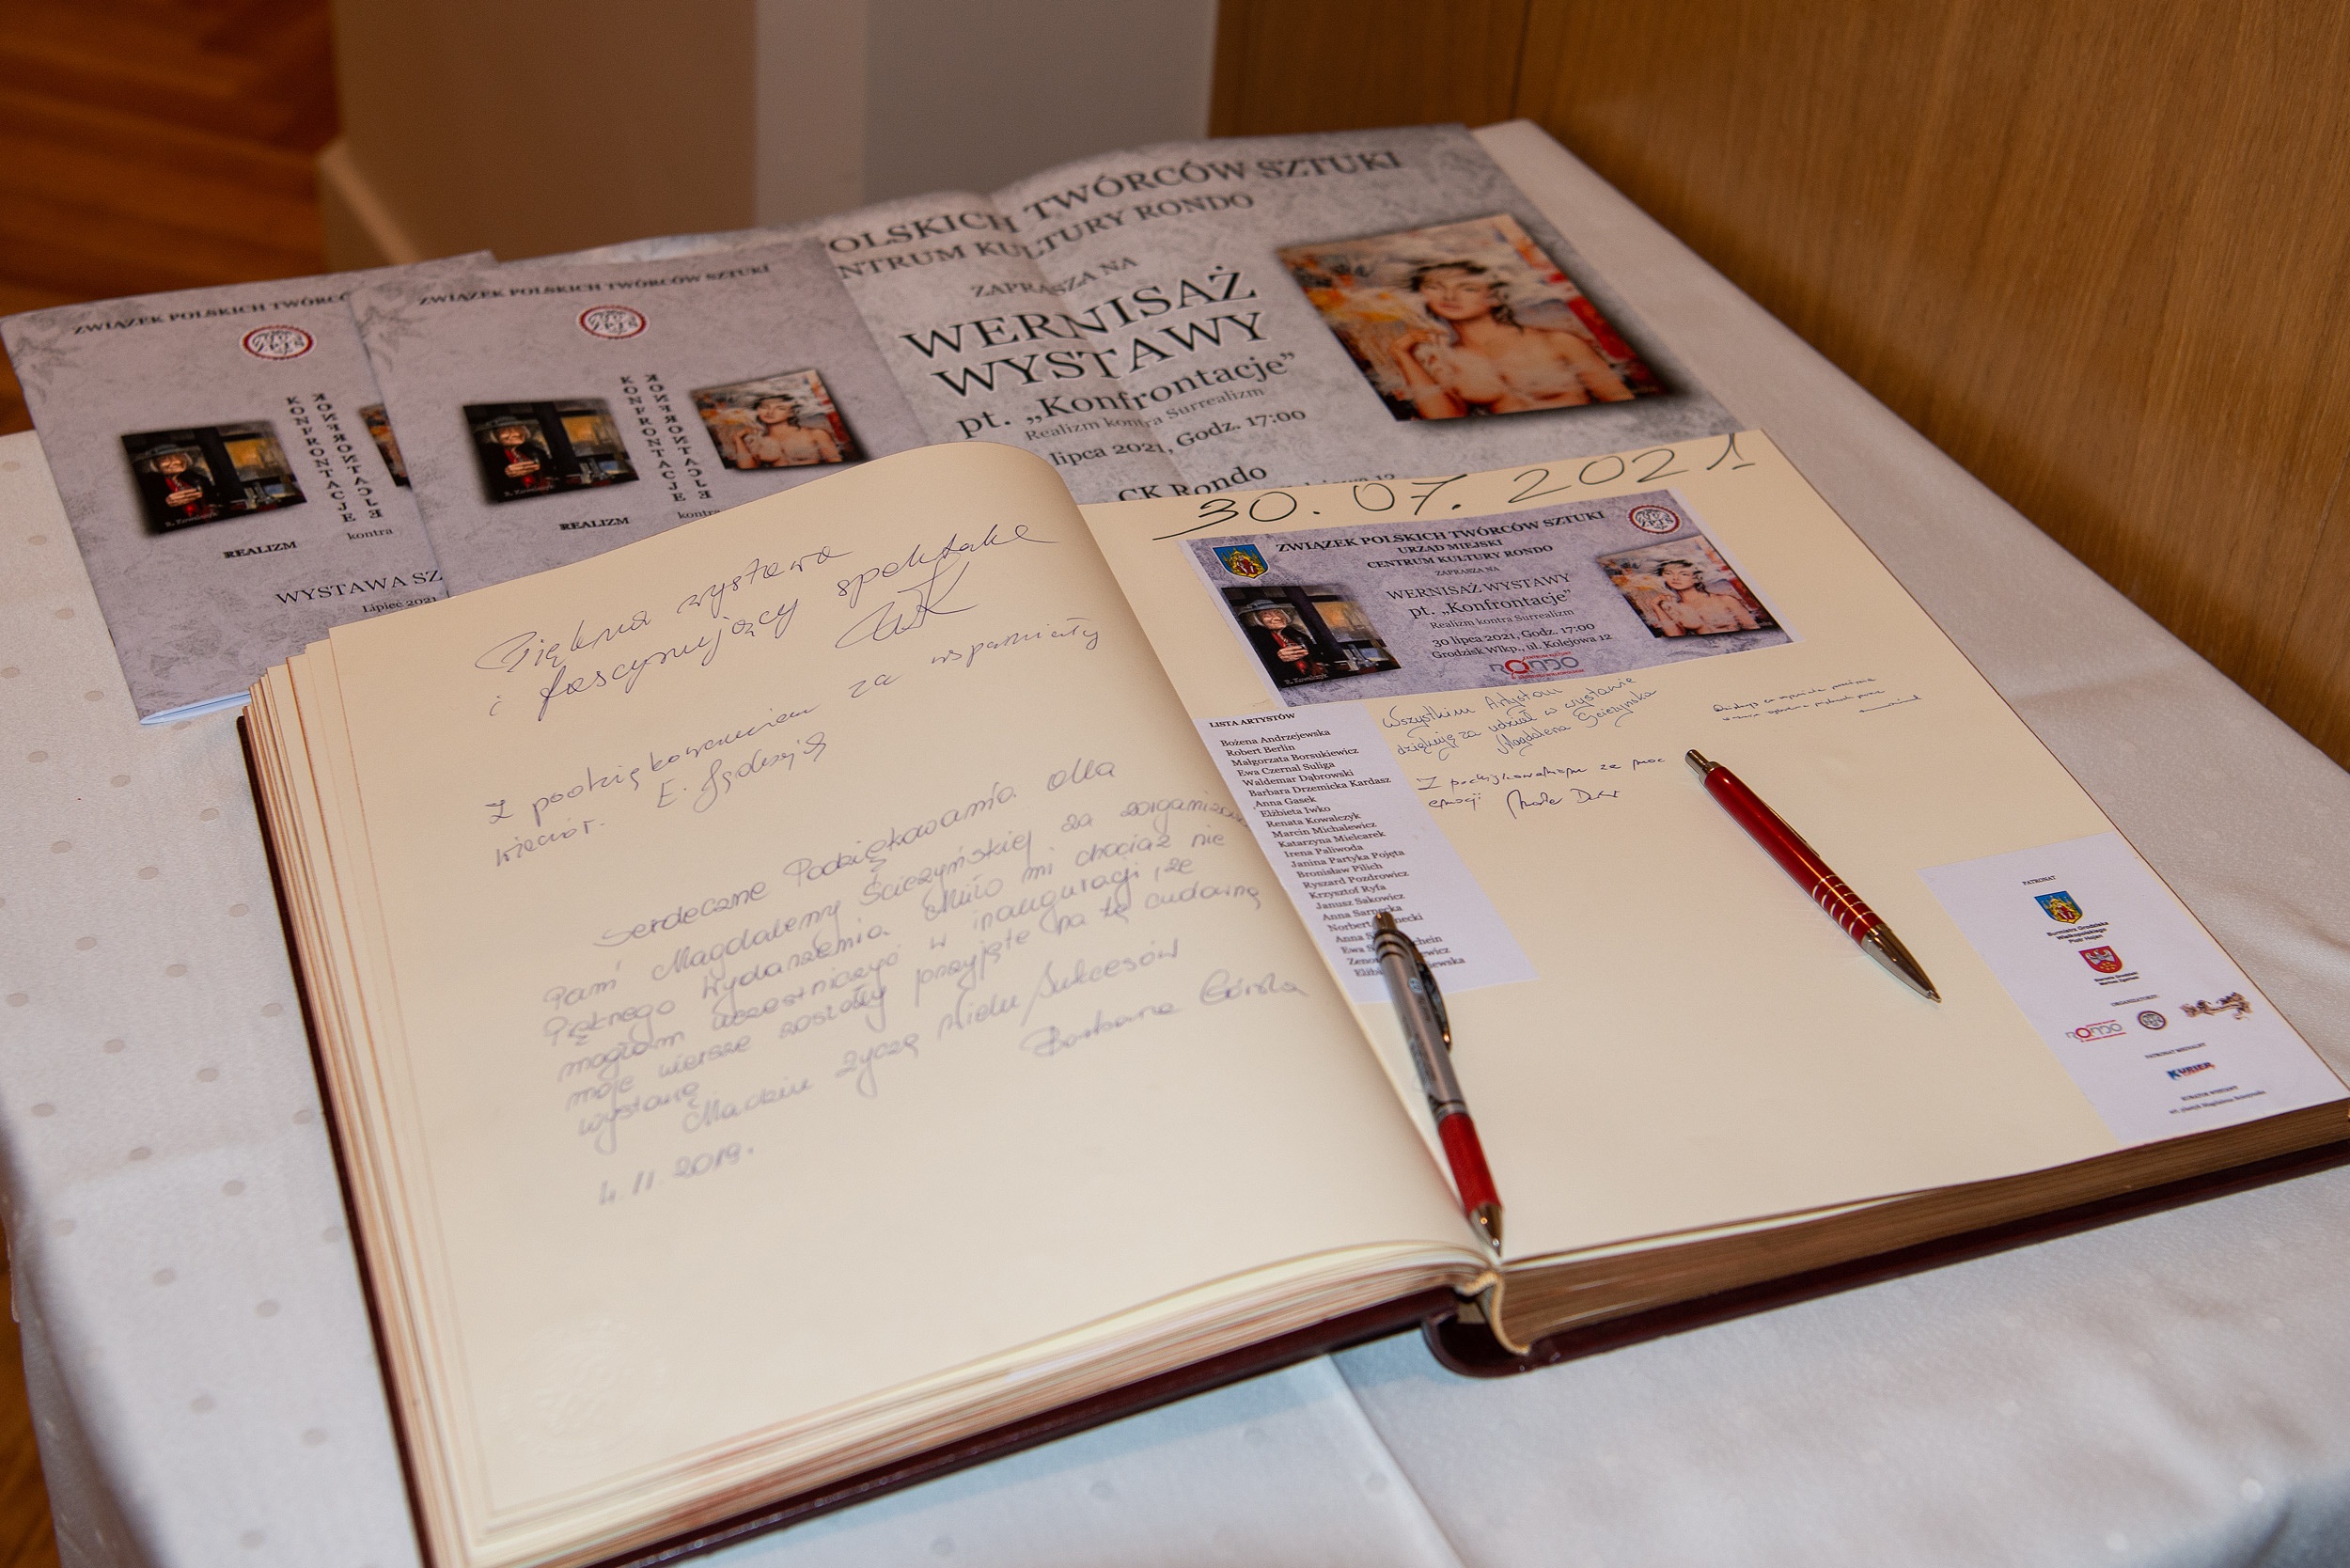 ZWIĄZEK POLSKICH TWÓRC
KONFRONTACJE
KONFRONTACJE
REALIZM
kontra
WYSTAWA SZ
Lipiec 2021
ZWIĄZEK POLSKICH TWÓRCÓW SZTUKI
KONFRONTACJE
KONFRONTACJE
REALIZM
kontra
POLSKICH TWÓRCÓW SZTUKI
NTRUM KULTURY RONDO
ZAPRASZA NA
WERNISAŻ
WYSTAWY
pt. „Konfrontacje”
Realizm kontra Surrealizm
lipca 2021, Godz. 17:00
CK Rondo
Piękna wystawa
i fascynujący spektakl
Z podziękowaniem za wspaniały
wieczór.
Serdeczne Podziękowania dla
Pani Magdaleny Ścieżyńskiej za zorganizow
Pięknego Wydarzenia. Miło mi chociaż nie
mogłam uczestniczyć w inauguracji, że
moje wiersze zostały przyjęte na tę cudowną
wystawę
Madziu życzę Wielu Sukcesów
Barbara Górska
4.11.2019.
30.07.2021
ZWIĄZEK POLSKICH TWÓRCÓW SZTUKI
URZĄD MIEJSKI
CENTRUM KULTURY RONDO
ZAPRASZA NA
WERNISAŻ WYSTAWY
pt. „Konfrontacje”
Realizm kontra Surrealizm
30 lipca 2021, Godz. 17:00
Grodzisk Wlkp., ul. Kolejowa 12
RONDO
Wszystkim Artystom
dziękuję za udział w wystawie
Magdalena Ścieżyńska
Z podziękowaniem za moc
emocji
LISTA ARTYSTÓW
Bożena Andrzejewska
Robert Berlin
Małgorzata Borsukiewicz
Ewa Czernal Suliga
Waldemar Dąbrowski
Barbara Drzemicka Kardasz
Anna Gasek
Elżbieta Iwko
Renata Kowalczyk
Marcin Michalewicz
Katarzyna Mielcarek
Irena Paliwoda
Janina Partyka Pojęta
Bronisław Pilich
Ryszard Pozdrowicz
Krzysztof Ryfa
Janusz Sakowicz
Anna Sarnecka
Norbert
Anna S
Ewa S
Zenon
Elżbi
PATRONAT
Burmistrz Grodziska
Wielkopolskiego
Piotr Hojan
ORGANIZATORZY
RONDO
PATRONAT MEDIALNY
KURIER